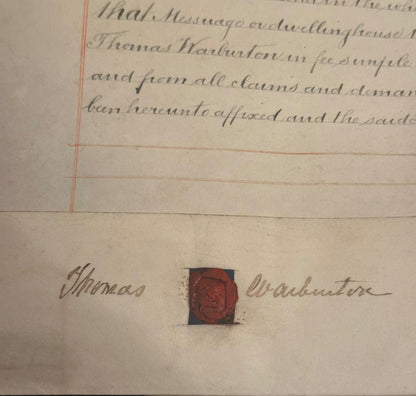 in the who
that Messuage or dwellinghouse
Thomas Warburton in fee simple
and from all claims and deman
ben hereunto affixed and the said
Thomas Warburton